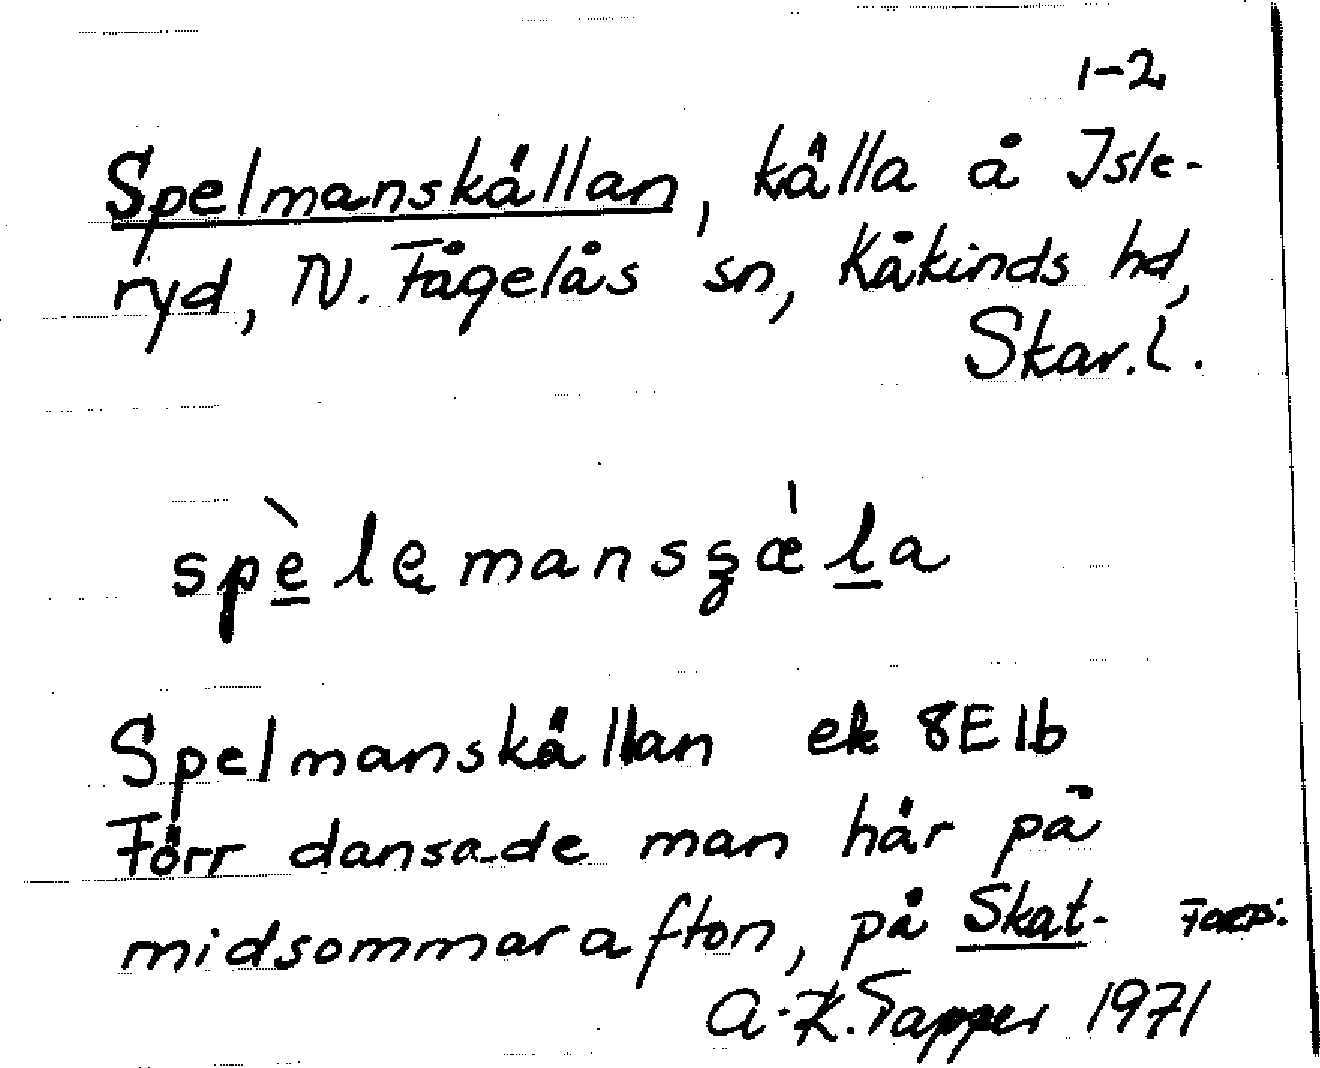 1-2
Spelmanskällan, källa å Isle-
ryd, N. Fågelås sn, Kåkinds hd,
Skar. l.
spè̱lęmansʂæ̀ḻa
Spelmanskällan ek 8E1b
Förr dansade man här på
midsommarafton, på Skat-
A.-K. Tapper 1971